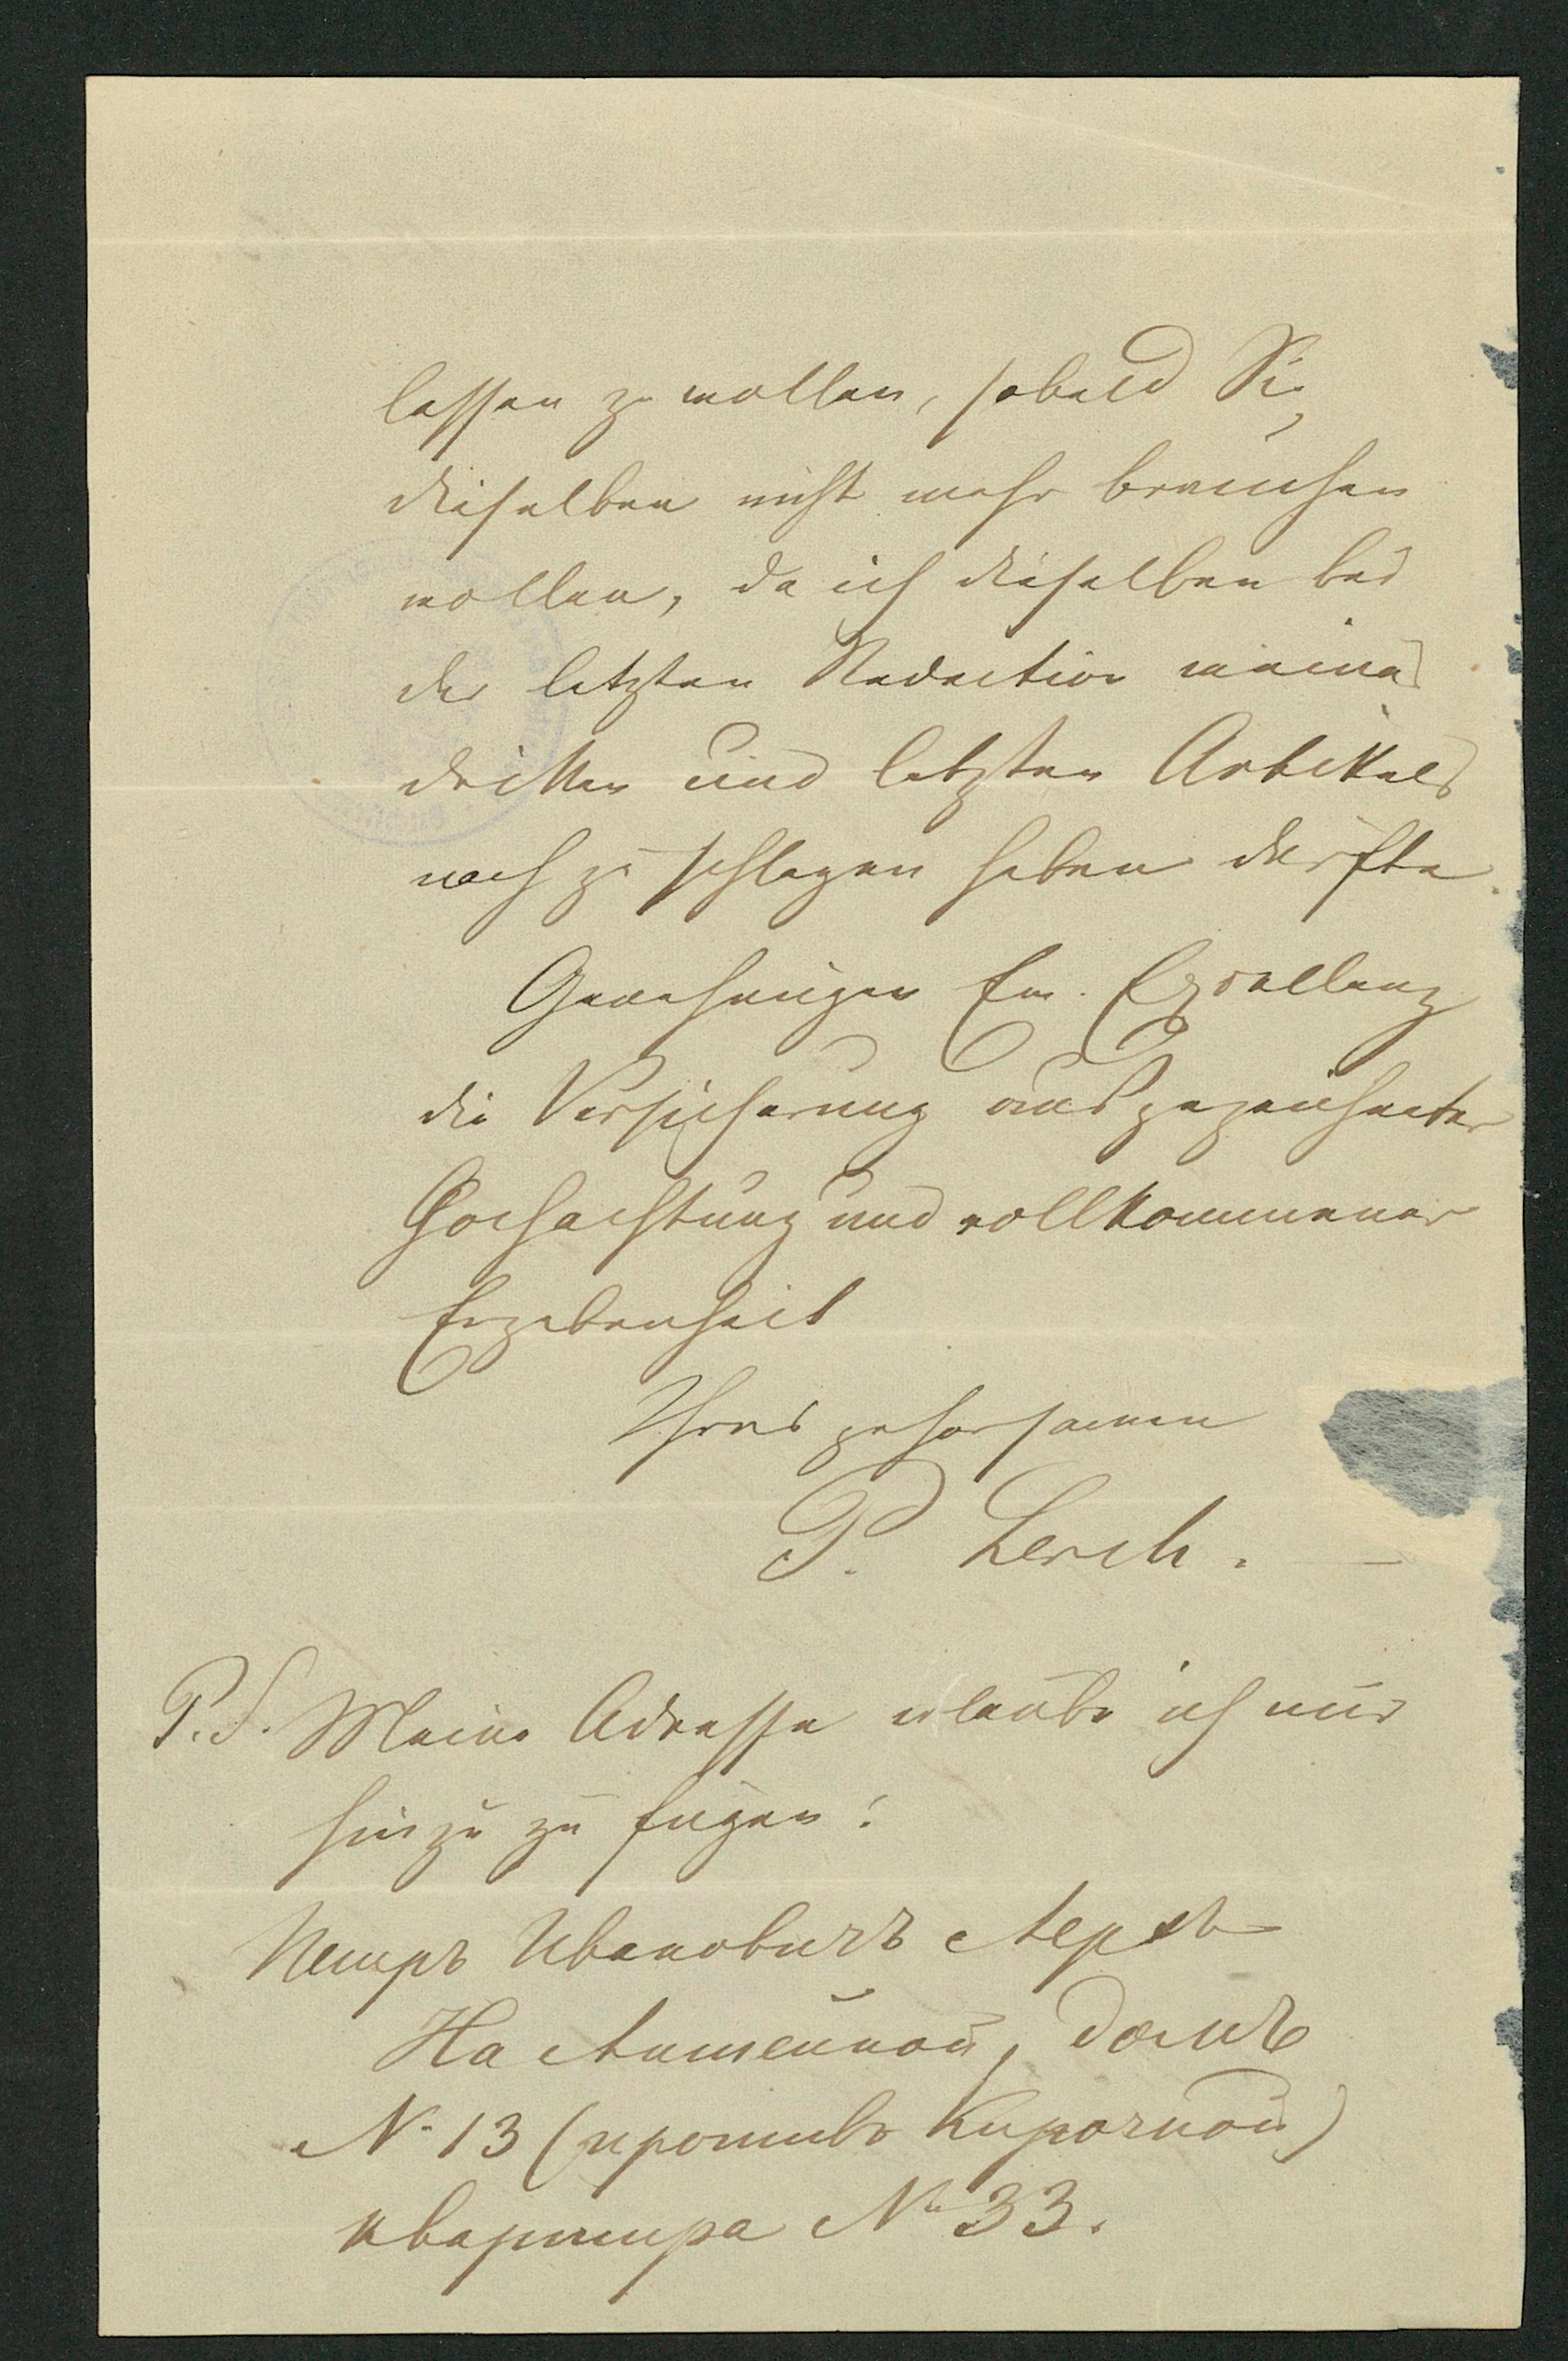 lassen zu wollen, sobald Sie
dieselben nicht mehr brauchen
wollen, da ich dieselben bei
der letzten Redaction meines
dritten und letzten Artikels
nach zu schlagen haben dürfte.
Genehmigen Ew. Excellenz
die Versicherung ausgezeichneter
Hochachtung und vollkommener
Ergebenheit
Ihres gehorsamen
P. Lerch.
P.S. Meine Adresse erlaube ich mir
hinzu zu fügen:
Петръ Ивановичъ Лерхъ
На Литейной, домъ
№ 13 (противъ Кирочной)
квартира № 33.